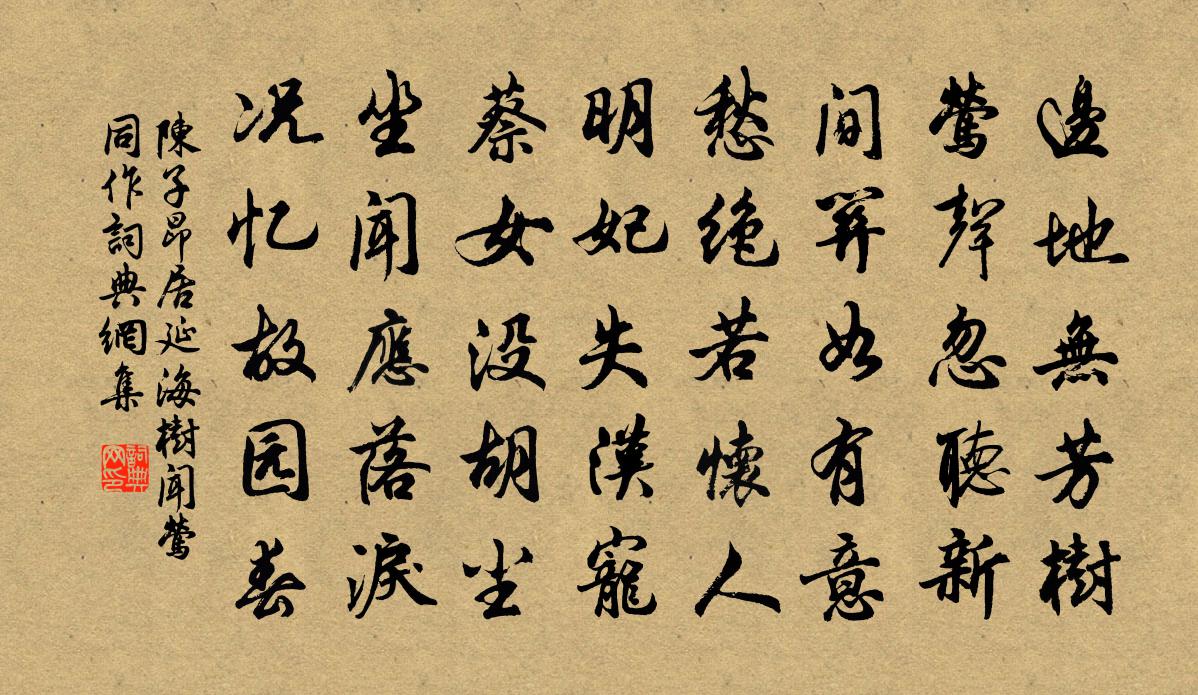 邊地無芳樹
鶯聲忽聽新
間關如有意
愁絕若懷人
明妃失漢寵
蔡女没胡尘
坐聞應落淚
况忆故园春
陳子昂居延海樹聞鶯
同作詞典網集
詞典
网印